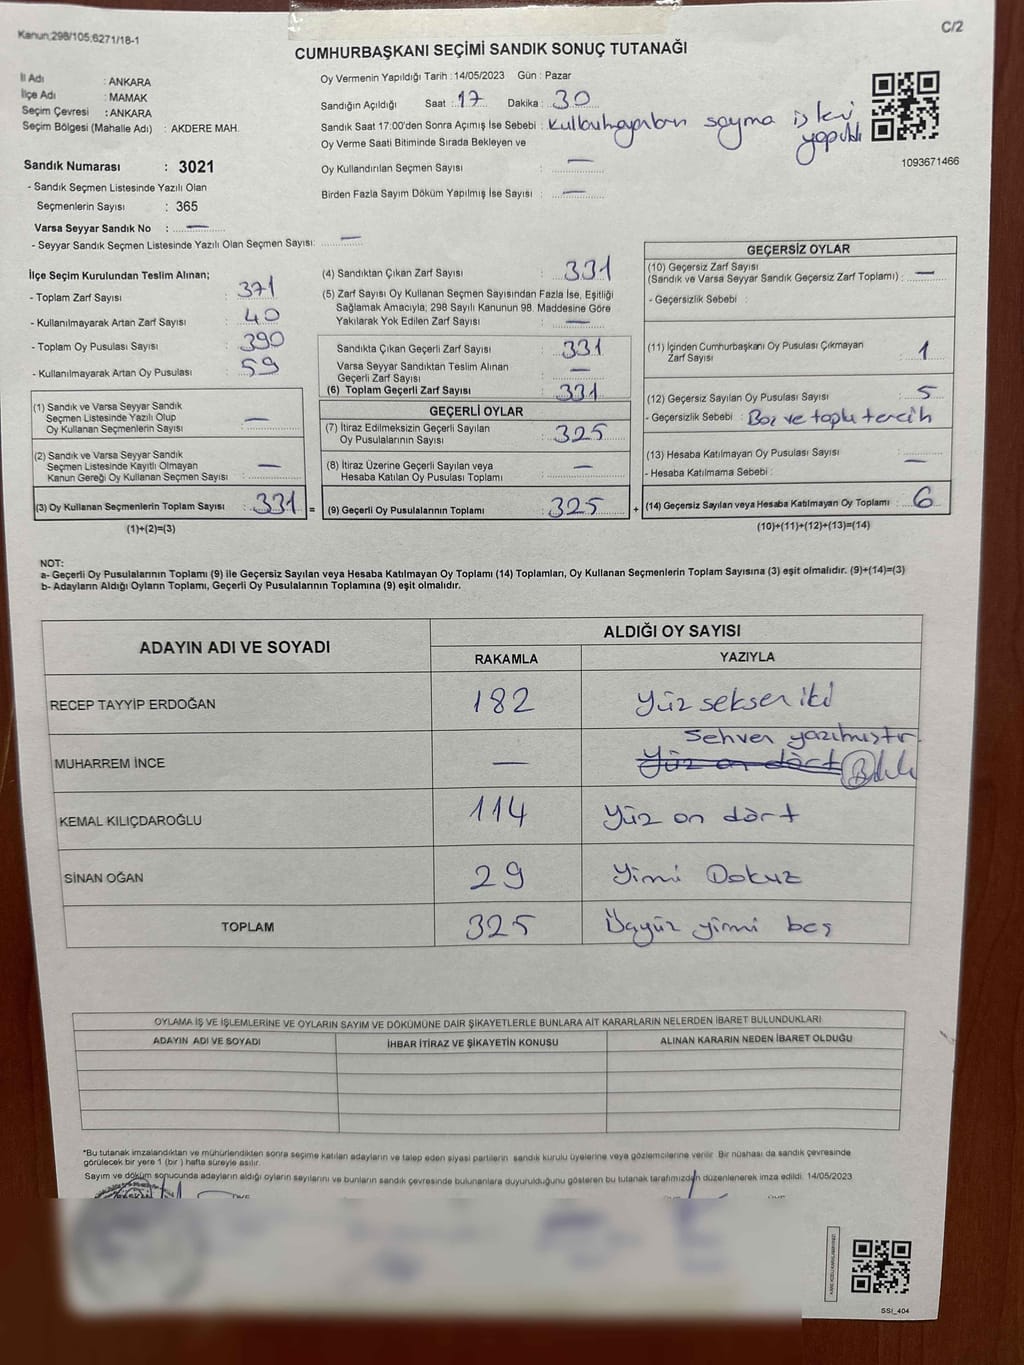 Kanun:298/105,6271/18-1
C/2
CUMHURBAŞKANI SEÇİMİ SANDIK SONUÇ TUTANAĞI
İl Adı : ANKARA
İlçe Adı : MAMAK
Seçim Çevresi : ANKARA
Seçim Bölgesi (Mahalle Adı) : AKDERE MAH.
Sandık Numarası : 3021
- Sandık Seçmen Listesinde Yazılı Olan
Seçmenlerin Sayısı : 365
Varsa Seyyar Sandık No : —
- Seyyar Sandık Seçmen Listesinde Yazılı Olan Seçmen Sayısı: —
Oy Vermenin Yapıldığı Tarih : 14/05/2023 Gün : Pazar
Sandığın Açıldığı Saat : 17 Dakika : 30
Sandık Saat 17:00'den Sonra Açımış İse Sebebi : sayma işleri
yapıldı
Oy Verme Saati Bitiminde Sırada Bekleyen ve
Oy Kullandırılan Seçmen Sayısı : —
Birden Fazla Sayım Döküm Yapılmış İse Sayısı : —
1093671466
İlçe Seçim Kurulundan Teslim Alınan;
- Toplam Zarf Sayısı : 371
- Kullanılmayarak Artan Zarf Sayısı : 40
- Toplam Oy Pusulası Sayısı : 390
- Kullanılmayarak Artan Oy Pusulası : 59
(1) Sandık ve Varsa Seyyar Sandık
Seçmen Listesinde Yazılı Olup
Oy Kullanan Seçmenlerin Sayısı : —
(2) Sandık ve Varsa Seyyar Sandık
Seçmen Listesinde Kayıtlı Olmayan
Kanun Gereği Oy Kullanan Seçmen Sayısı : —
(3) Oy Kullanan Seçmenlerin Toplam Sayısı : 331 =
(1)+(2)=(3)
(4) Sandıktan Çıkan Zarf Sayısı : 331
(5) Zarf Sayısı Oy Kullanan Seçmen Sayısından Fazla İse, Eşitliği
Sağlamak Amacıyla; 298 Sayılı Kanunun 98. Maddesine Göre
Yakılarak Yok Edilen Zarf Sayısı : —
Sandıkta Çıkan Geçerli Zarf Sayısı : 331
Varsa Seyyar Sandıktan Teslim Alınan
Geçerli Zarf Sayısı : —
(6) Toplam Geçerli Zarf Sayısı : 331
GEÇERLİ OYLAR
(7) İtiraz Edilmeksizin Geçerli Sayılan
Oy Pusulalarının Sayısı : 325
(8) İtiraz Üzerine Geçerli Sayılan veya
Hesaba Katılan Oy Pusulası Toplamı : —
(9) Geçerli Oy Pusulalarının Toplamı : 325 +
GEÇERSİZ OYLAR
(10) Geçersiz Zarf Sayısı
(Sandık ve Varsa Seyyar Sandık Geçersiz Zarf Toplamı) : —
- Geçersizlik Sebebi :
(11) İçinden Cumhurbaşkanı Oy Pusulası Çıkmayan
Zarf Sayısı : 1
(12) Geçersiz Sayılan Oy Pusulası Sayısı : 5
- Geçersizlik Sebebi : Boş ve toplu tercih
(13) Hesaba Katılmayan Oy Pusulası Sayısı : —
- Hesaba Katılmama Sebebi :
(14) Geçersiz Sayılan veya Hesaba Katılmayan Oy Toplamı : 6
(10)+(11)+(12)+(13)=(14)
NOT:
a- Geçerli Oy Pusulalarının Toplamı (9) ile Geçersiz Sayılan veya Hesaba Katılmayan Oy Toplamı (14) Toplamları, Oy Kullanan Seçmenlerin Toplam Sayısına (3) eşit olmalıdır. (9)+(14)=(3)
b- Adayların Aldığı Oyların Toplamı, Geçerli Oy Pusulalarının Toplamına (9) eşit olmalıdır.
ADAYIN ADI VE SOYADI ALDIĞI OY SAYISI
RAKAMLA YAZIYLA
RECEP TAYYİP ERDOĞAN 182 Yüz seksen iki
Sehven yazılmıştır
MUHARREM İNCE — Yüz on dört
KEMAL KILIÇDAROĞLU 114 Yüz on dört
SİNAN OĞAN 29 Yirmi Dokuz
TOPLAM 325 Üçyüz yirmi beş
OYLAMA İŞ VE İŞLEMLERİNE VE OYLARIN SAYIM VE DÖKÜMÜNE DAİR ŞİKAYETLERLE BUNLARA AİT KARARLARIN NELERDEN İBARET BULUNDUKLARI
ADAYIN ADI VE SOYADI İHBAR İTİRAZ VE ŞİKAYETİN KONUSU ALINAN KARARIN NEDEN İBARET OLDUĞU
*Bu tutanak imzalandıktan ve mühürlendikten sonra seçime katılan adayların ve talep eden siyasi partilerin sandık kurulu üyelerine veya gözlemcilerine verilir. Bir nüshası da sandık çevresinde
görülecek bir yere 1 (bir ) hafta süreyle asılır.
Sayım ve döküm sonucunda adayların aldığı oyların sayılarını ve bunların sandık çevresinde bulunanlara duyurulduğunu gösteren bu tutanak tarafımızdan düzenlenerek imza edildi. 14/05/2023
SSİ_404